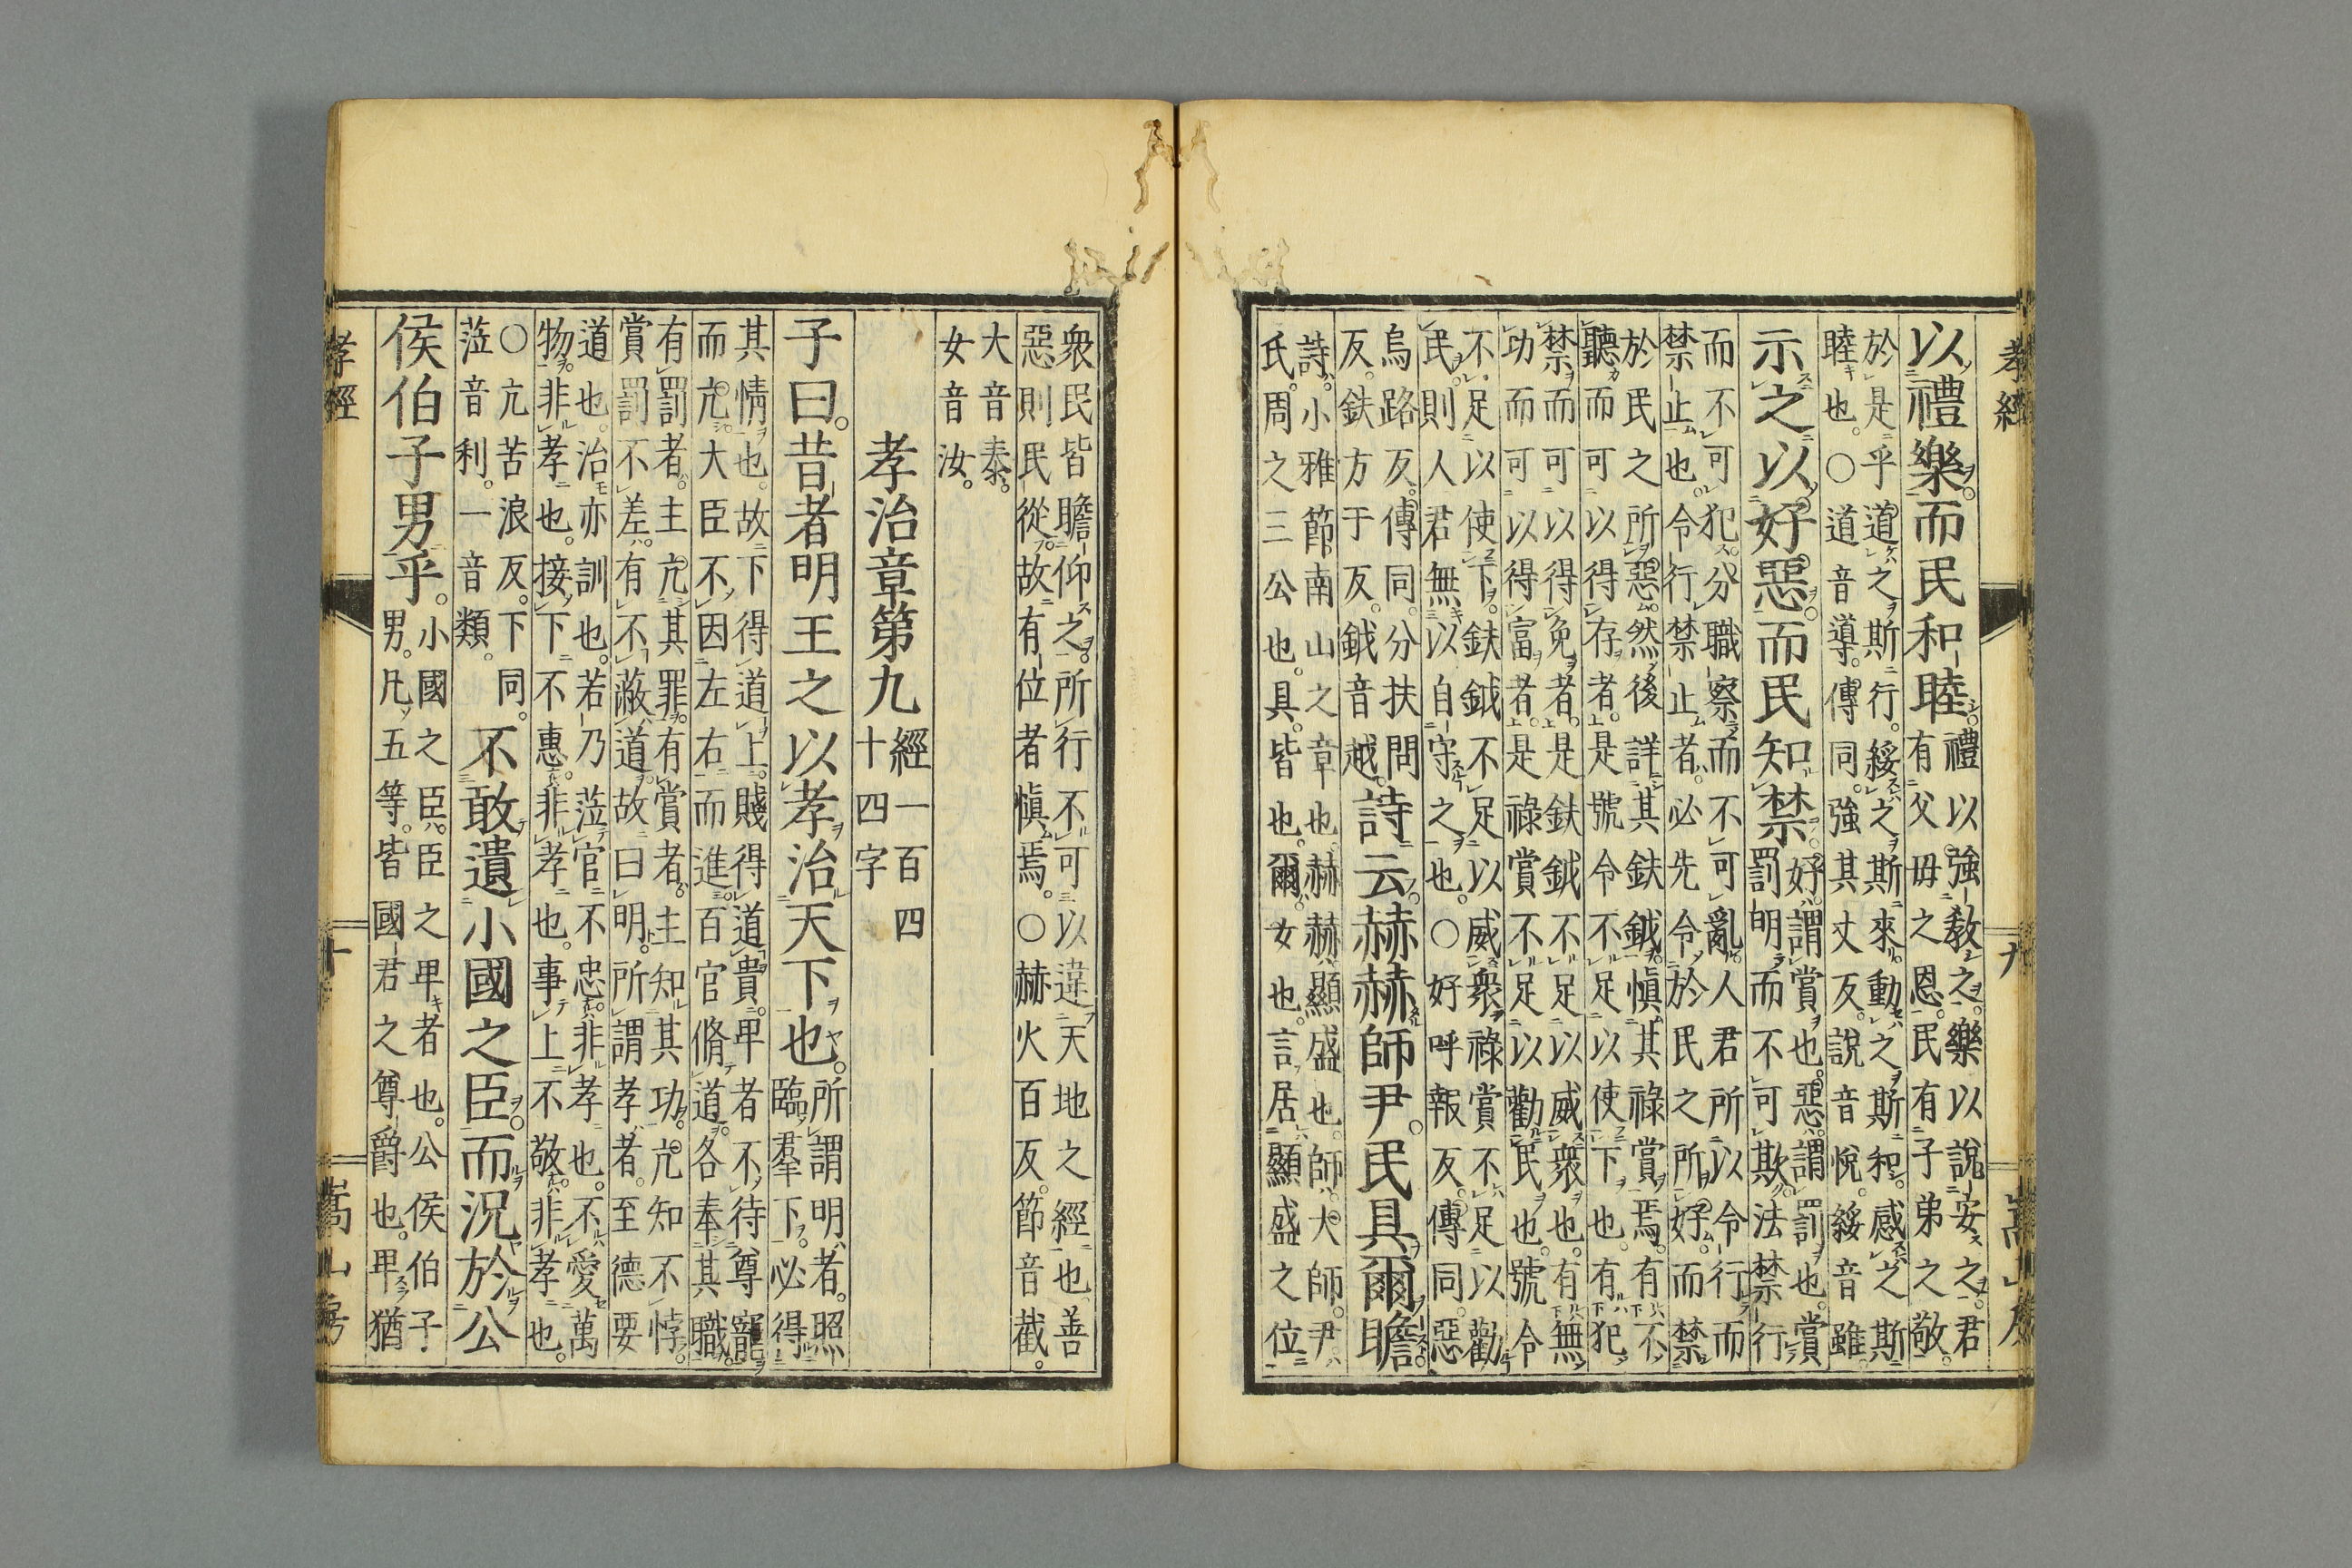 孝經　九　嵩山房
以禮樂而民和睦。禮以強教之。樂以說安之。君
有父母之恩。民有子弟之敬。
於是乎道之斯行。綏之斯來。動之斯和。感之斯
睦也。〇道音導。傳同。強其丈反。說音悅。綏音雖
示之以好惡。而民知禁。好謂賞也。惡謂罰也。賞
罰明而不可欺。法禁行
而不可犯。分職察而不可亂。人君所以令行而
禁止也。令行禁止者。必先令於民之所好。而禁
於民之所惡。然後詳其鈇鉞。愼其祿賞焉。有不
聽而可以得存者。是號令不足以使下也。有犯
禁而可以得免者。是鈇鉞不足以威衆也。有無
功而可以得富者。是祿賞不足以勸民也。號令
不足以使下。鈇鉞不足以威衆。祿賞不足以勸
民。則人君無以自守之也。〇好呼報反。傳同。惡
烏路反。傳同。分扶問
反。鈇方于反。鉞音越。詩云。赫赫師尹。民具爾瞻。
詩小雅節南山之章也。赫赫顯盛也。師大師。尹
氏。周之三公也。具。皆也。爾。女也。言居顯盛之位
衆民皆瞻仰之。所行不可以違天地之經也。善
惡則民從。故有位者愼焉。〇赫火百反。節音截。
大音泰。
女音汝。
孝治章第九　經一百四
十四字
子曰。昔者明王之以孝治天下也。所謂明者。照
臨羣下。必得
其情也。故下得道上。賤得道貴。卑者不待尊寵
而亢。大臣不因左右而進。百官脩道。各奉其職。
有罰者。主亢其罪。有賞者。主知其功。亢知不悖。
賞罰不差。有不蔽道。故曰明。所謂孝者。至德要
道也。治亦訓也。若乃蒞官不忠。非孝也。不愛萬
物。非孝也。接下不惠。非孝也。事上不敬。非孝也。
〇亢苦浪反。下同。
蒞音利。一音類。不敢遺小國之臣。而況於公
侯伯子男乎。小國之臣。臣之卑者也。公侯伯子
男。凡五等。皆國君之尊爵也。卑猶
孝經　十　嵩山房